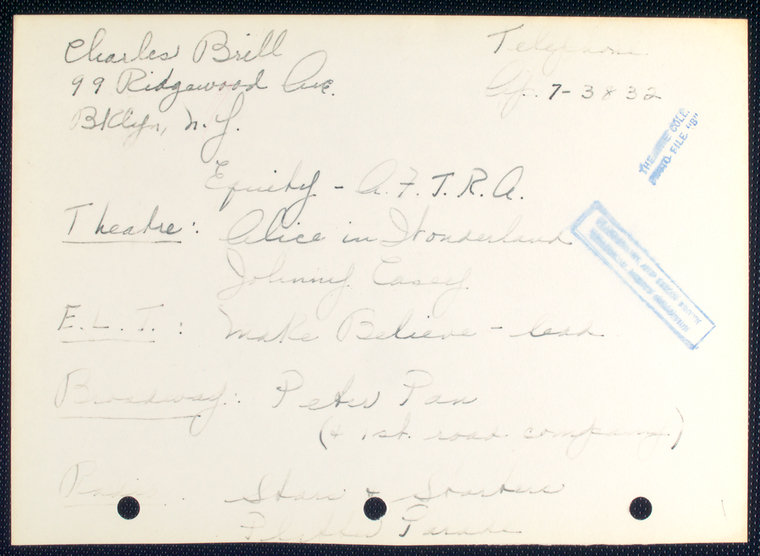 Charles Brill
Telephone
99 Ridgewood Ave.
7-3832
Bklyn, N.Y.
THE COLL.
PHOTO FILE "B"
Equity - A.F.T.R.A.
Theatre: Alice in Wonderland
Johnny Casey
E.L.T.: Make Believe - lead
Broadway: Peter Pan
(& 1st. road company)
Radio: Stars & Starters
Parade